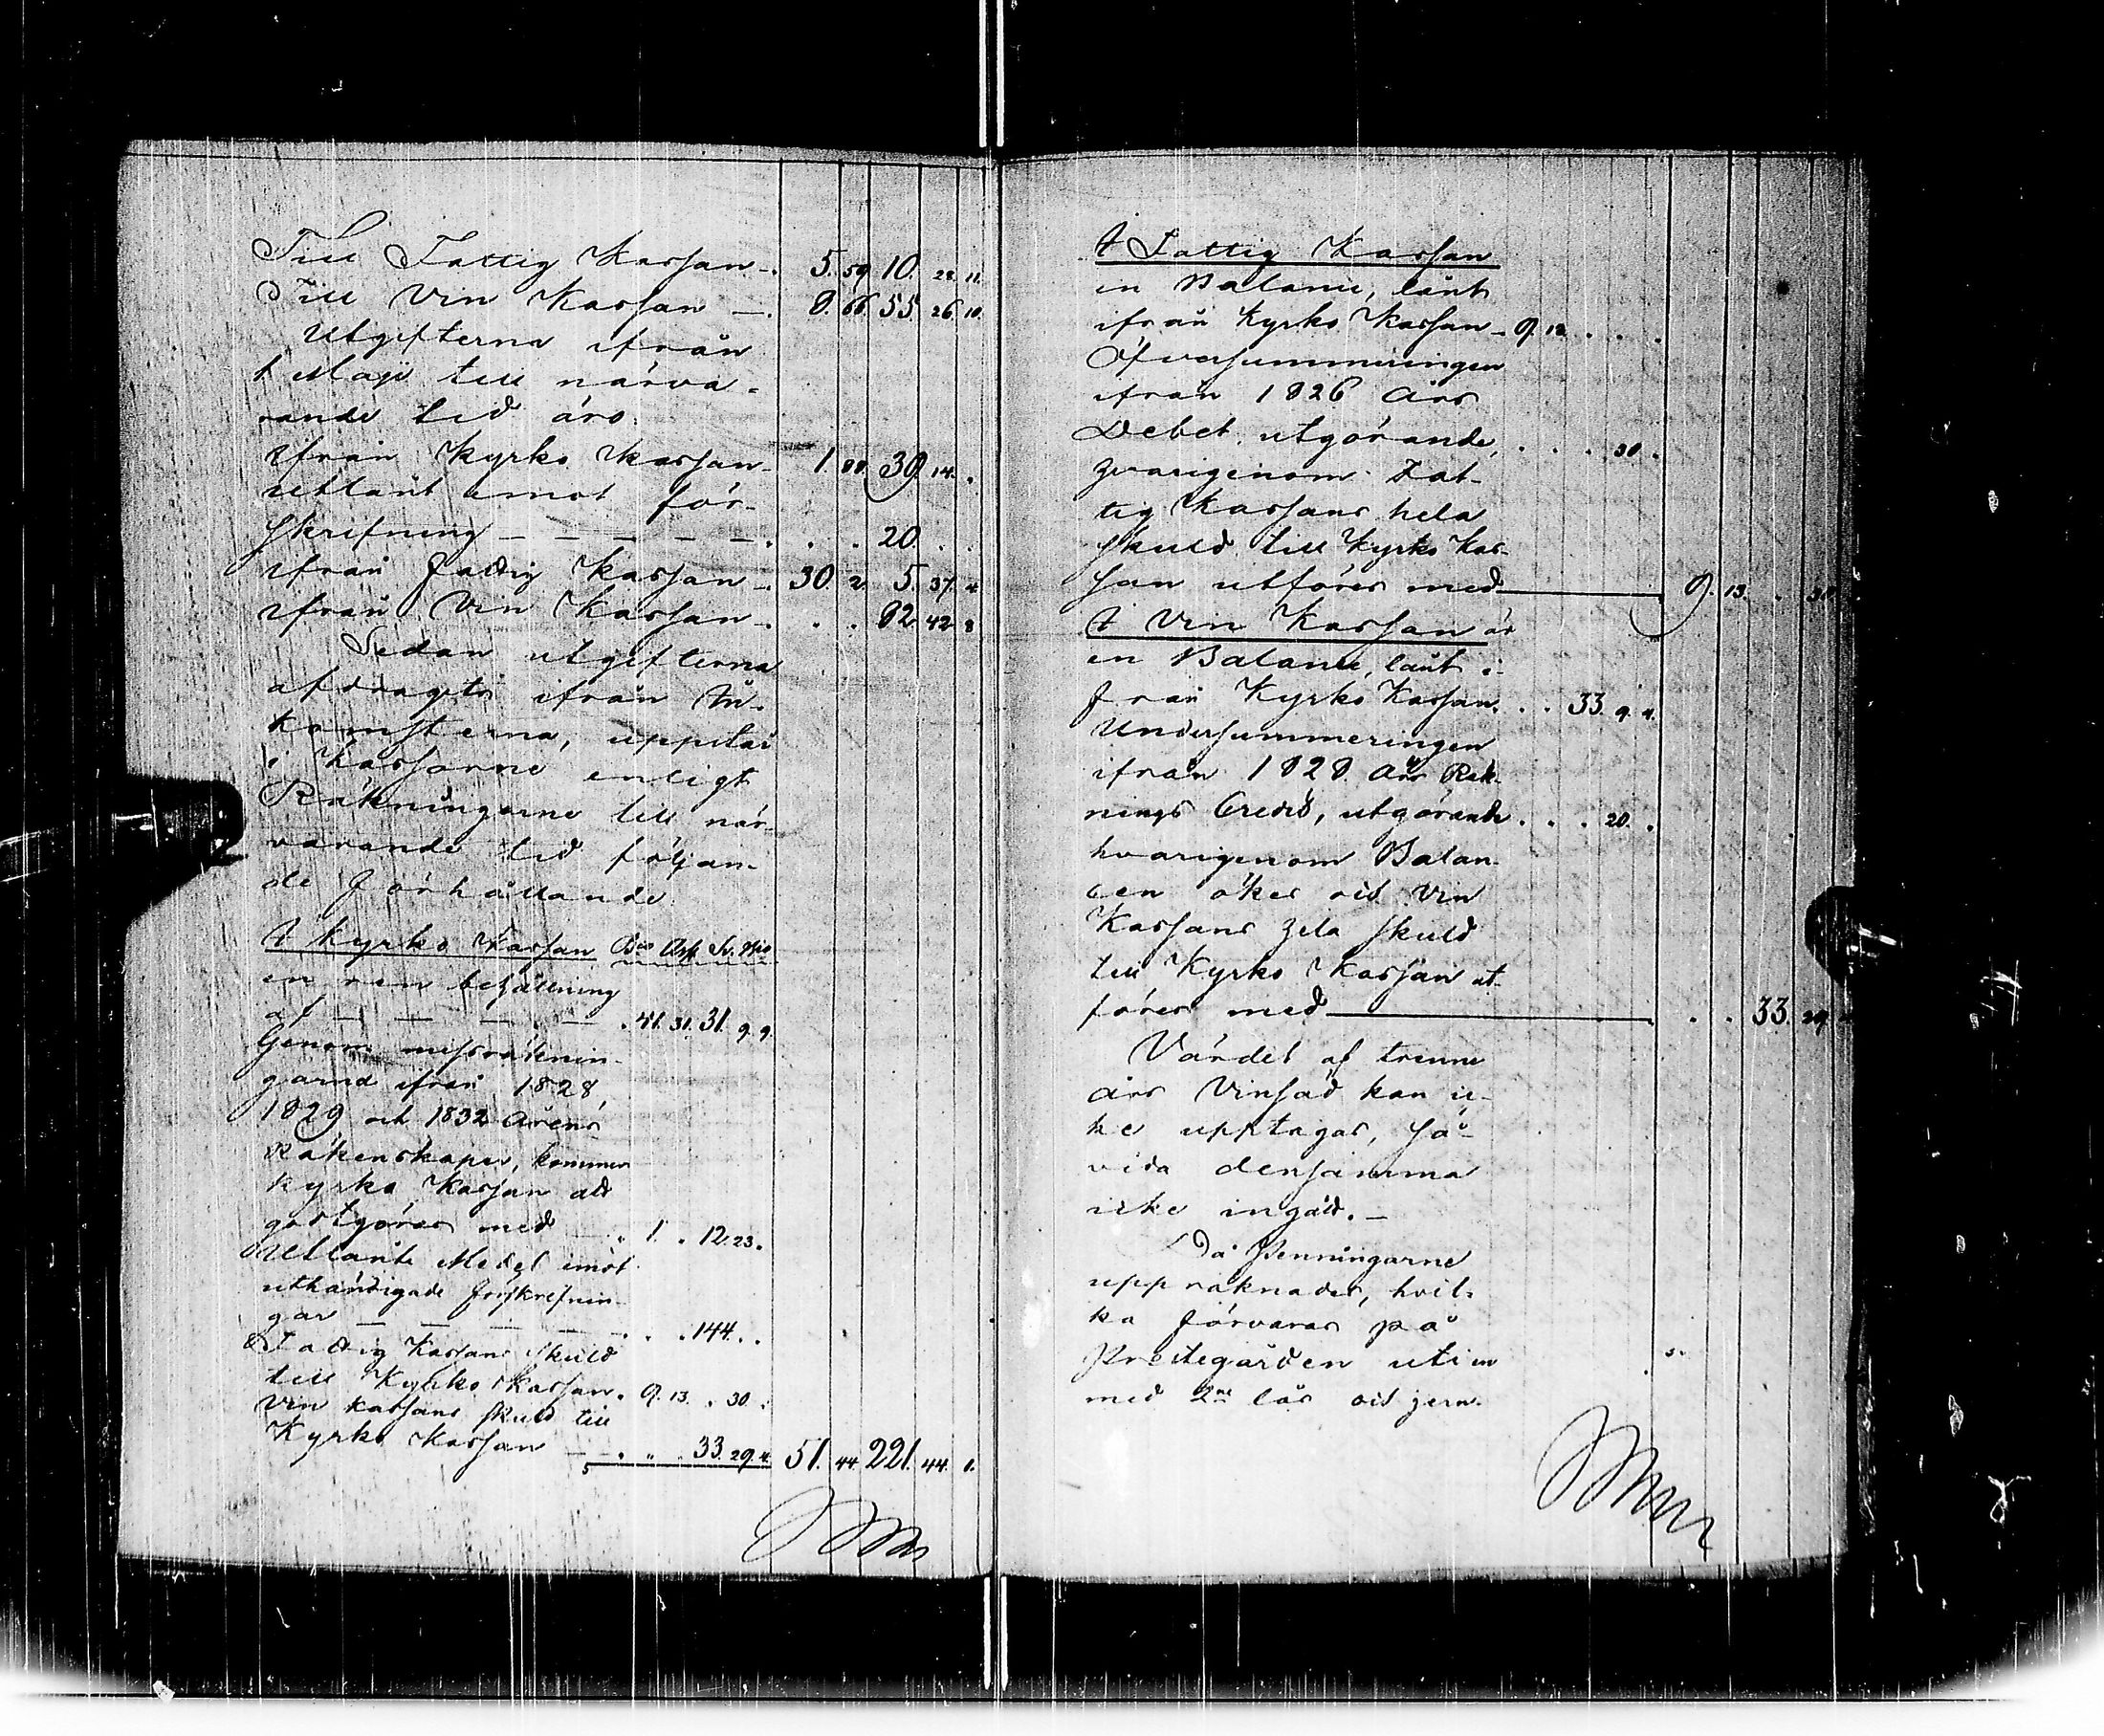 Till Fattig Kassan -. 5. 59. 10. 28. 11.
Till Vin Kassan -. 8. 66. 55. 26. 10.
Utgifterna ifrån
1 Maji till närva-
rande tid äro.
ifrån Kyrko Kassan - 1. 88. 39. 14. .
utlånt emot för-
skrifning - - - - - . . . 20. . .
ifrån Fattig Kassan -. 30. 2. 5. 37. 4
ifrån Vin Kassan -. . . 82. 42. 8
Sedan utgifterna
afdragits ifrån In-
komsterna, uppstår
i Kassorne enligt
Räkningarne till när-
varande tid följan-
de förhållande
I Kyrko Kassan
en ren behållning
af - - - - . 41. 31. 31. 9. 9.
Genom missräknin-
garna ifrån 1828,
1829 och 1832 Årens
Räkenskaper, kommer
Kyrko Kassan att
godtgöras med . 1. . 12. 23. .
Utlånte Medel emot
uthändigade förskrifnin-
gar - - - - . . . 144. . .
Fattig Kassans skuld
till Kyrko Kassan. 9. 13. . 30. .
Vin Kassans skuld till
Kyrko Kassan - - . . . 33. 29. 4. 51. 44. 221. 44. 1.
I Fattig Kassan
en Balance, lånt
ifrån Kyrko Kassan - 9. 13. . . .
Öfversummeringen
ifrån 1826 Års
Debet, utgörande, . . . . 30. .
hvarigenom Fat-
tig Kassans hela
skuld till Kyrko Kas-
san utföres med 9. 13. . 30. .
I Vin Kassan är
en Balance, lånt i-
från Kyrko Kassan. . . 33. 9. 4.
Undersummeringen
ifrån 1828 Års Räk-
nings Credit, utgörande . . . 20. .
hvarigenom Balan-
cen ökes och Vin
Kassans hela skuld
till Kyrko Kassan ut-
föres med . . 33. 29.
Värdet af trenne
års Vinsäd kan ic-
ke upptagas, så-
vida densamma
icke ingått. -
Då Penningarne
uppräknades, hvil-
ka förvaras på
Prestegården uti en
med 2ne lås och jern-